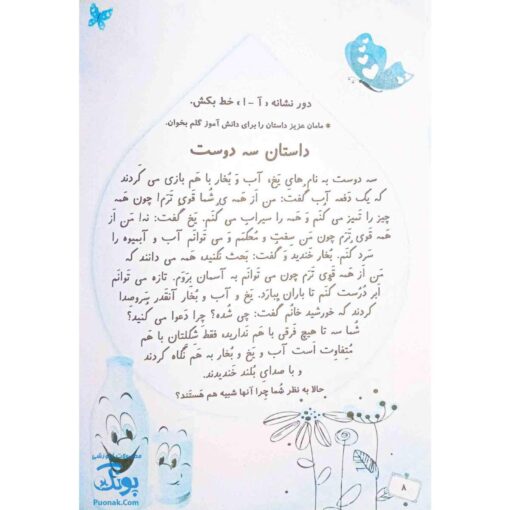 دور نشانه «آ - ا» خط بکش.
* مامان عزیز داستان را برای دانش آموز گلم بخوان.
داستان سه دوست
سه دوست به نام هایِ یَخ، آب وَ بُخار با هَم بازی می کَردند
که یک دَفعه آب گُفت: مَن اَز هَمه یِ شُما قَوی تَرَم! چون هَمه
چیز را تَمیز می کُنَم وَ هَمه را سیراب می کُنَم. یَخ گُفت: نه! مَن اَز
هَمه قَوی تَرَم چون مَن سِفت وَ مُحکَمَم وَ می تَوانَم آب وَ آبمیوه را
سَرد کُنَم. بُخار خَندید وَ گُفت: بَحث نَکُنید، هَمه می دانَند که
مَن اَز هَمه قَوی تَرَم چون می تَوانَم به آسمان بِرَوَم. تازه می تَوانَم
اَبر دُرُست کُنَم تا باران بِبارَد. یَخ وَ آب وَ بُخار آنقَدر سَروصِدا
کَردند که خورشید خانُم گُفت: چی شُده؟ چِرا دَعوا می کُنید؟
شُما سه تا هیچ فَرقی با هَم نَدارید، فَقَط شِکلِتان با هَم
مُتِفاوِت اَست آب وَ یَخ وَ بُخار به هَم نِگاه کَردند
وَ با صِدایِ بُلَند خَندیدند.
حالا به نظر شُما چرا آنها شبیه هم هَستَند؟
۸
پونک
Puonak.Com